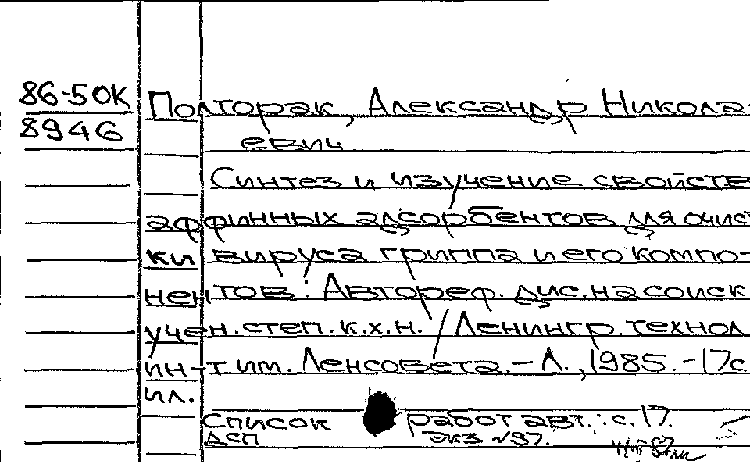 86-50К Полторак, Александр Никола-
8946 евич.
Синтез и изучение свойств
аффинных адсорбентов для очист-
ки вируса гриппа и его компо-
нентов: Автореф. дис. на соиск.
учен. степ. к.х.н. / Ленингр. технол.
ин-т им. Ленсовета. - Л., 1985. - 17 с.
ил.
Список работ авт.: с. 17.
ДСП экз №37.